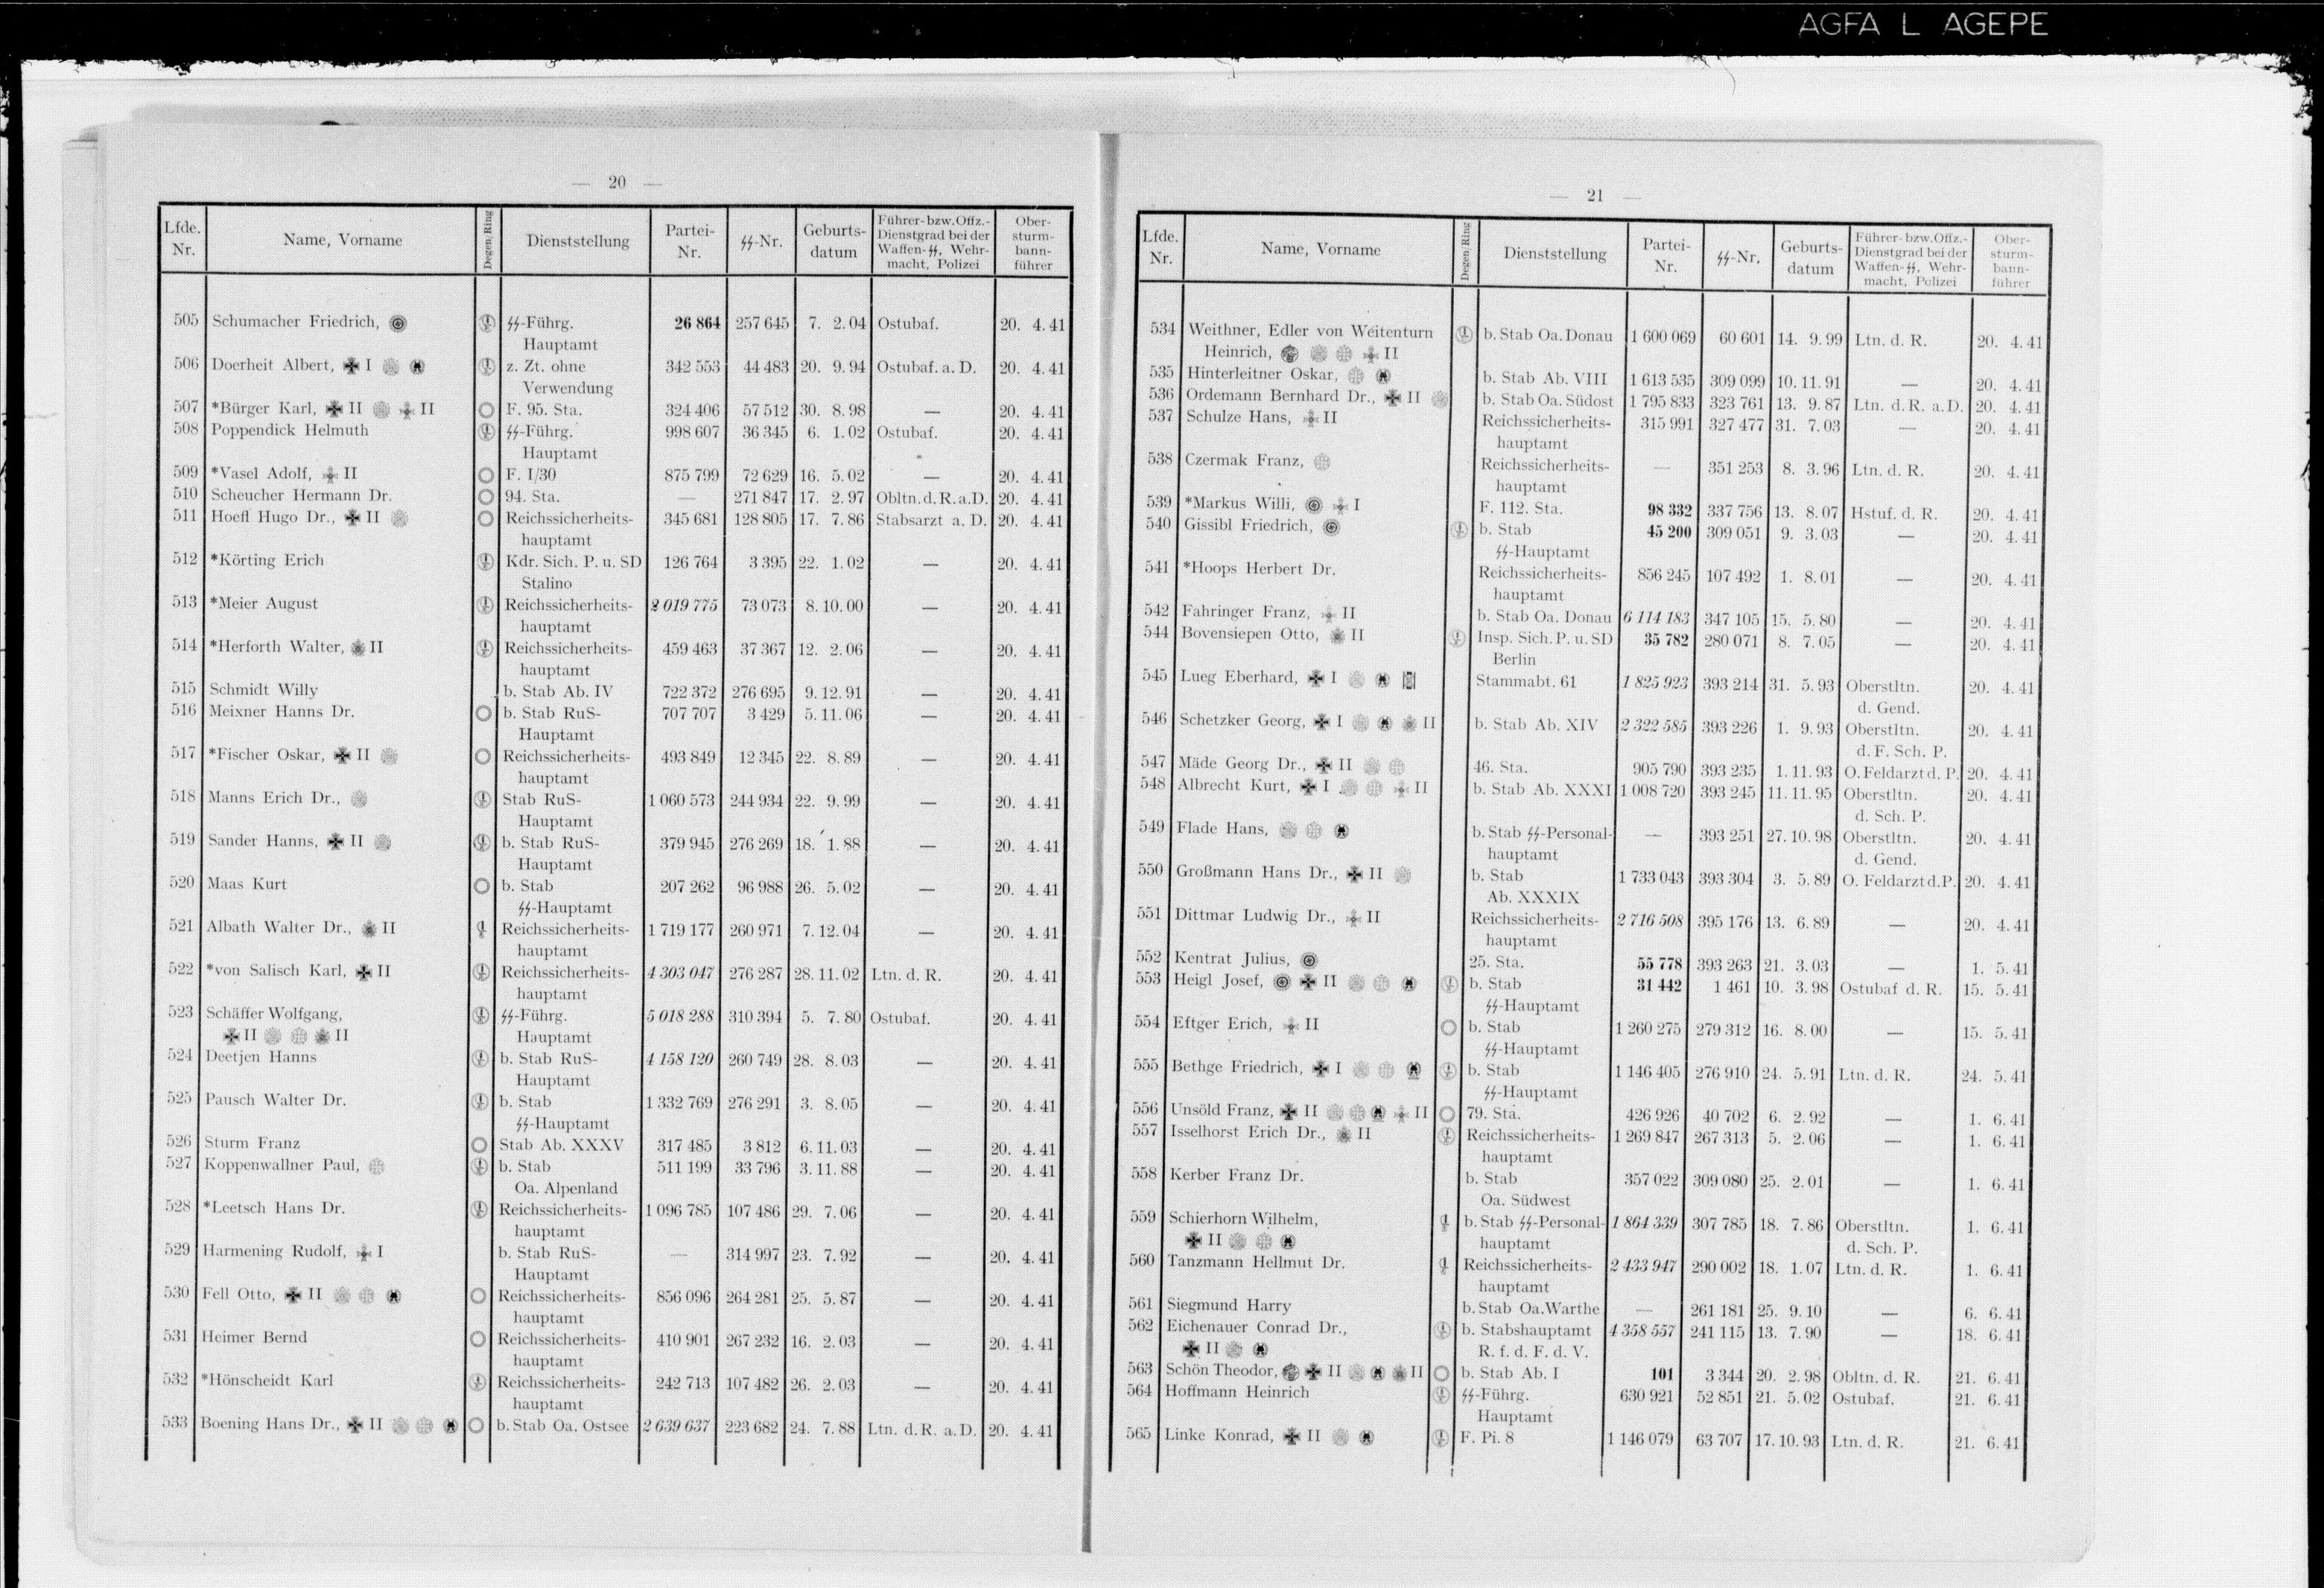 AGFA L AGEPE
— 20 —
Lfde. Nr. Name, Vorname Degen/Ring Dienststellung Partei-Nr. ᛋᛋ-Nr. Geburts-datum Führer-bzw. Offz.-Dienstgrad bei der Waffen-ᛋᛋ, Wehr-macht, Polizei Ober-sturm-bann-führer
505 Schumacher Friedrich, ᛋᛋ-Führg. 26 864 257 645 7. 2. 04 Ostubaf. 20. 4. 41
Hauptamt
506 Doerheit Albert, I z. Zt. ohne 342 553 44 483 20. 9. 94 Ostubaf. a. D. 20. 4. 41
Verwendung
507 *Bürger Karl, II II F. 95. Sta. 324 406 57 512 30. 8. 98 — 20. 4. 41
508 Poppendick Helmuth ᛋᛋ-Führg. 998 607 36 345 6. 1. 02 Ostubaf. 20. 4. 41
Hauptamt
509 *Vasel Adolf, II F. I/30 875 799 72 629 16. 5. 02 — 20. 4. 41
510 Scheucher Hermann Dr. 94. Sta. — 271 847 17. 2. 97 Obltn. d. R. a. D. 20. 4. 41
511 Hoefl Hugo Dr., II Reichssicherheits- 345 681 128 805 17. 7. 86 Stabsarzt a. D. 20. 4. 41
hauptamt
512 *Körting Erich Kdr. Sich. P. u. SD 126 764 3 395 22. 1. 02 — 20. 4. 41
Stalino
513 *Meier August Reichssicherheits- 2 019 775 73 073 8. 10. 00 — 20. 4. 41
hauptamt
514 *Herforth Walter, II Reichssicherheits- 459 463 37 367 12. 2. 06 — 20. 4. 41
hauptamt
515 Schmidt Willy b. Stab Ab. IV 722 372 276 695 9. 12. 91 — 20. 4. 41
516 Meixner Hanns Dr. b. Stab RuS- 707 707 3 429 5. 11. 06 — 20. 4. 41
Hauptamt
517 *Fischer Oskar, II Reichssicherheits- 493 849 12 345 22. 8. 89 — 20. 4. 41
hauptamt
518 Manns Erich Dr., Stab RuS- 1 060 573 244 934 22. 9. 99 — 20. 4. 41
Hauptamt
519 Sander Hanns, II b. Stab RuS- 379 945 276 269 18. 1. 88 — 20. 4. 41
Hauptamt
520 Maas Kurt b. Stab 207 262 96 988 26. 5. 02 — 20. 4. 41
ᛋᛋ-Hauptamt
521 Albath Walter Dr., II Reichssicherheits- 1 719 177 260 971 7. 12. 04 — 20. 4. 41
hauptamt
522 *von Salisch Karl, II Reichssicherheits- 4 303 047 276 287 28. 11. 02 Ltn. d. R. 20. 4. 41
hauptamt
523 Schäffer Wolfgang, ᛋᛋ-Führg. 5 018 288 310 394 5. 7. 80 Ostubaf. 20. 4. 41
II II Hauptamt
524 Deetjen Hanns b. Stab RuS- 4 158 120 260 749 28. 8. 03 — 20. 4. 41
Hauptamt
525 Pausch Walter Dr. b. Stab 1 332 769 276 291 3. 8. 05 — 20. 4. 41
ᛋᛋ-Hauptamt
526 Sturm Franz Stab Ab. XXXV 317 485 3 812 6. 11. 03 — 20. 4. 41
527 Koppenwallner Paul, b. Stab 511 199 33 796 3. 11. 88 — 20. 4. 41
Oa. Alpenland
528 *Leetsch Hans Dr. Reichssicherheits- 1 096 785 107 486 29. 7. 06 — 20. 4. 41
hauptamt
529 Harmening Rudolf, I b. Stab RuS- — 314 997 23. 7. 92 — 20. 4. 41
Hauptamt
530 Fell Otto, II Reichssicherheits- 856 096 264 281 25. 5. 87 — 20. 4. 41
hauptamt
531 Heimer Bernd Reichssicherheits- 410 901 267 232 16. 2. 03 — 20. 4. 41
hauptamt
532 *Hönscheidt Karl Reichssicherheits- 242 713 107 482 26. 2. 03 — 20. 4. 41
hauptamt
533 Boening Hans Dr., II b. Stab Oa. Ostsee 2 639 637 223 682 24. 7. 88 Ltn. d. R. a. D. 20. 4. 41
— 21 —
Lfde. Nr. Name, Vorname Degen/Ring Dienststellung Partei-Nr. ᛋᛋ-Nr. Geburts-datum Führer-bzw. Offz.-Dienstgrad bei der Waffen-ᛋᛋ, Wehr-macht, Polizei Ober-sturm-bann-führer
534 Weithner, Edler von Weitenturn b. Stab Oa. Donau 1 600 069 60 601 14. 9. 99 Ltn. d. R. 20. 4. 41
Heinrich, II
535 Hinterleitner Oskar, b. Stab Ab. VIII 1 613 535 309 099 10. 11. 91 — 20. 4. 41
536 Ordemann Bernhard Dr., II b. Stab Oa. Südost 1 795 833 323 761 13. 9. 87 Ltn. d. R. a. D. 20. 4. 41
537 Schulze Hans, II Reichssicherheits- 315 991 327 477 31. 7. 03 — 20. 4. 41
hauptamt
538 Czermak Franz, Reichssicherheits- — 351 253 8. 3. 96 Ltn. d. R. 20. 4. 41
hauptamt
539 *Markus Willi, I F. 112. Sta. 98 332 337 756 13. 8. 07 Hstuf. d. R. 20. 4. 41
540 Gissibl Friedrich, b. Stab 45 200 309 051 9. 3. 03 — 20. 4. 41
ᛋᛋ-Hauptamt
541 *Hoops Herbert Dr. Reichssicherheits- 856 245 107 492 1. 8. 01 — 20. 4. 41
hauptamt
542 Fahringer Franz, II b. Stab Oa. Donau 6 114 183 347 105 15. 5. 80 — 20. 4. 41
544 Bovensiepen Otto, II Insp. Sich. P. u. SD 35 782 280 071 8. 7. 05 — 20. 4. 41
Berlin
545 Lueg Eberhard, I Stammabt. 61 1 825 923 393 214 31. 5. 93 Oberstltn. 20. 4. 41
d. Gend.
546 Schetzker Georg, I II b. Stab Ab. XIV 2 322 585 393 226 1. 9. 93 Oberstltn. 20. 4. 41
d. F. Sch. P.
547 Mäde Georg Dr., II 46. Sta. 905 790 393 235 1. 11. 93 O. Feldarzt d. P. 20. 4. 41
548 Albrecht Kurt, I II b. Stab Ab. XXXI 1 008 720 393 245 11. 11. 95 Oberstltn. 20. 4. 41
d. Sch. P.
549 Flade Hans, b. Stab ᛋᛋ-Personal- — 393 251 27. 10. 98 Oberstltn. 20. 4. 41
hauptamt d. Gend.
550 Großmann Hans Dr., II b. Stab 1 733 043 393 304 3. 5. 89 O. Feldarzt d. P. 20. 4. 41
Ab. XXXIX
551 Dittmar Ludwig Dr., II Reichssicherheits- 2 716 508 395 176 13. 6. 89 — 20. 4. 41
hauptamt
552 Kentrat Julius, 25. Sta. 55 778 393 263 21. 3. 03 — 1. 5. 41
553 Heigl Josef, II b. Stab 31 442 1 461 10. 3. 98 Ostubaf d. R. 15. 5. 41
ᛋᛋ-Hauptamt
554 Eftger Erich, II b. Stab 1 260 275 279 312 16. 8. 00 — 15. 5. 41
ᛋᛋ-Hauptamt
555 Bethge Friedrich, I b. Stab 1 146 405 276 910 24. 5. 91 Ltn. d. R. 24. 5. 41
ᛋᛋ-Hauptamt
556 Unsöld Franz, II II 79. Sta. 426 926 40 702 6. 2. 92 — 1. 6. 41
557 Isselhorst Erich Dr., II Reichssicherheits- 1 269 847 267 313 5. 2. 06 — 1. 6. 41
hauptamt
558 Kerber Franz Dr. b. Stab 357 022 309 080 25. 2. 01 — 1. 6. 41
Oa. Südwest
559 Schierhorn Wilhelm, b. Stab ᛋᛋ-Personal- 1 864 339 307 785 18. 7. 86 Oberstltn. 1. 6. 41
II hauptamt d. Sch. P.
560 Tanzmann Hellmut Dr. Reichssicherheits- 2 433 947 290 002 18. 1. 07 Ltn. d. R. 1. 6. 41
hauptamt
561 Siegmund Harry b. Stab Oa. Warthe — 261 181 25. 9. 10 — 6. 6. 41
562 Eichenauer Conrad Dr., b. Stabshauptamt 4 358 557 241 115 13. 7. 90 — 18. 6. 41
II R. f. d. F. d. V.
563 Schön Theodor, II II b. Stab Ab. I 101 3 344 20. 2. 98 Obltn. d. R. 21. 6. 41
564 Hoffmann Heinrich ᛋᛋ-Führg. 630 921 52 851 21. 5. 02 Ostubaf. 21. 6. 41
Hauptamt
565 Linke Konrad, II F. Pi. 8 1 146 079 63 707 17. 10. 93 Ltn. d. R. 21. 6. 41